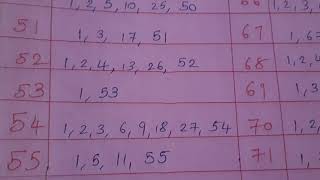 1, 2, 5, 10, 25, 50 66 1, 2, 3,
51 1, 3, 17, 51 67 1, 67
52 1, 2, 4, 13, 26, 52 68 1, 2, 4
53 1, 53 69 1, 3,
54 1, 2, 3, 6, 9, 18, 27, 54 70 1, 2,
55 1, 5, 11, 55 71 1,